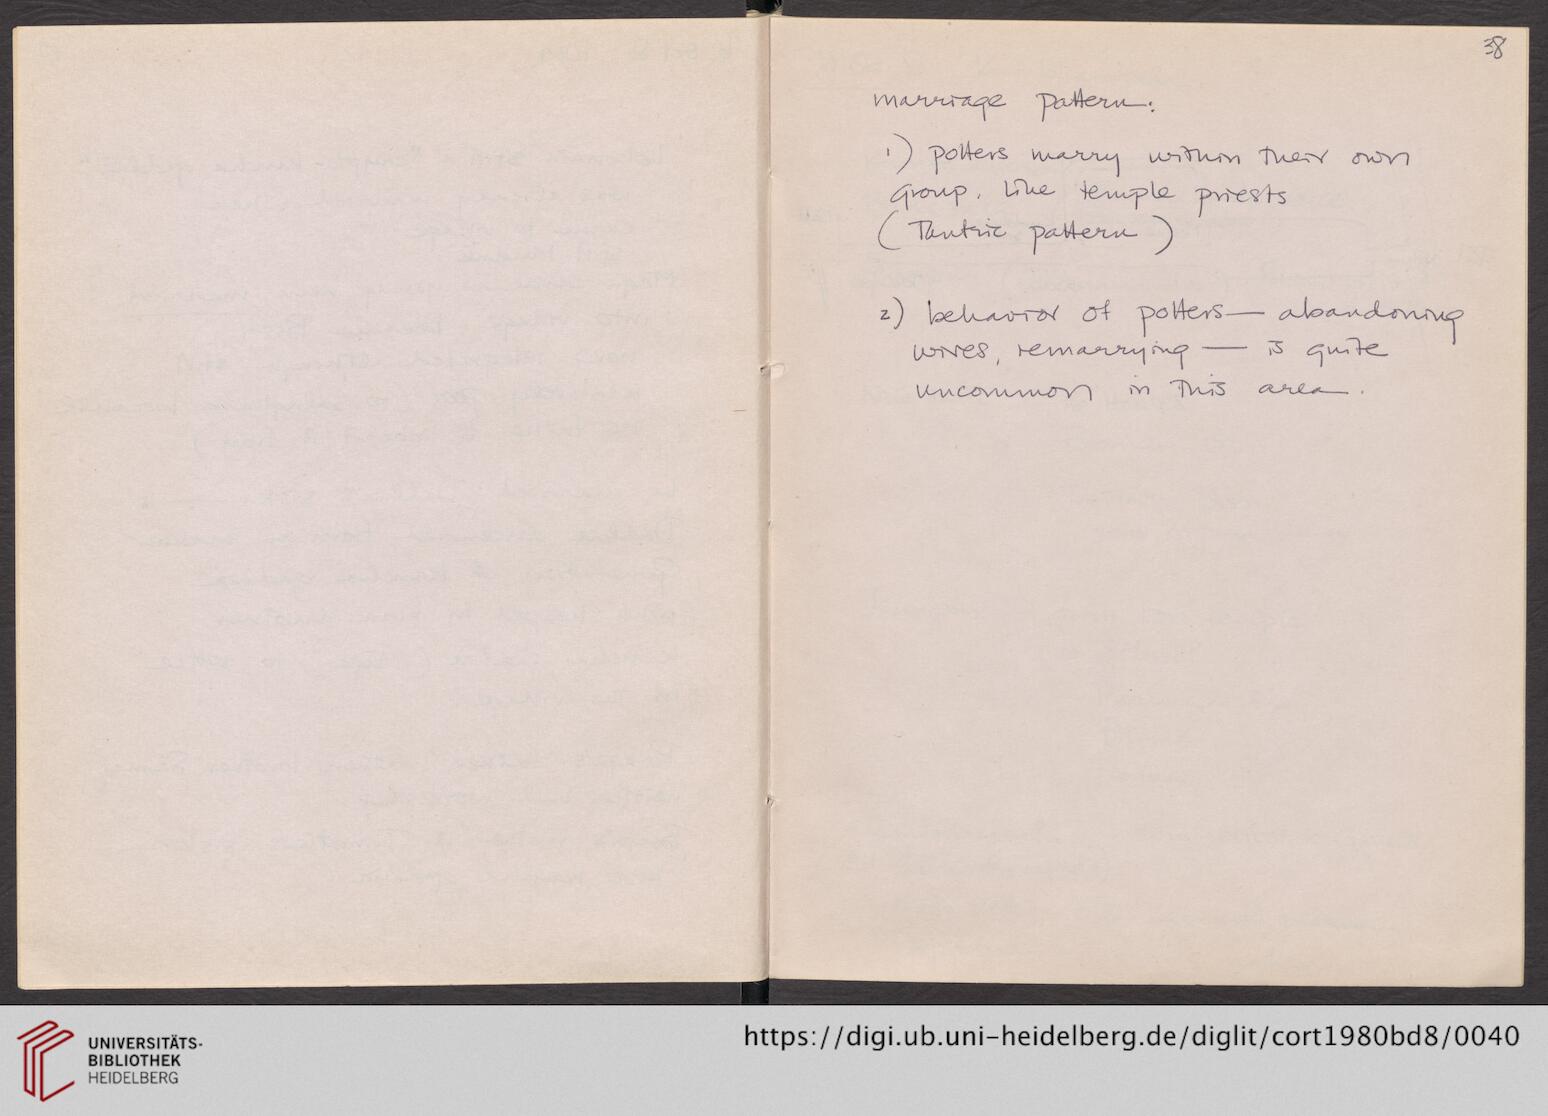 38
marriage pattern:
1) potters marry within their own
group. like temple priests
(Tantric pattern)
2) behavior of potters — abandoning
wives, remarrying — is quite
uncommon in this area.
UNIVERSITÄTS-
BIBLIOTHEK
HEIDELBERG
https://digi.ub.uni-heidelberg.de/diglit/cort1980bd8/0040